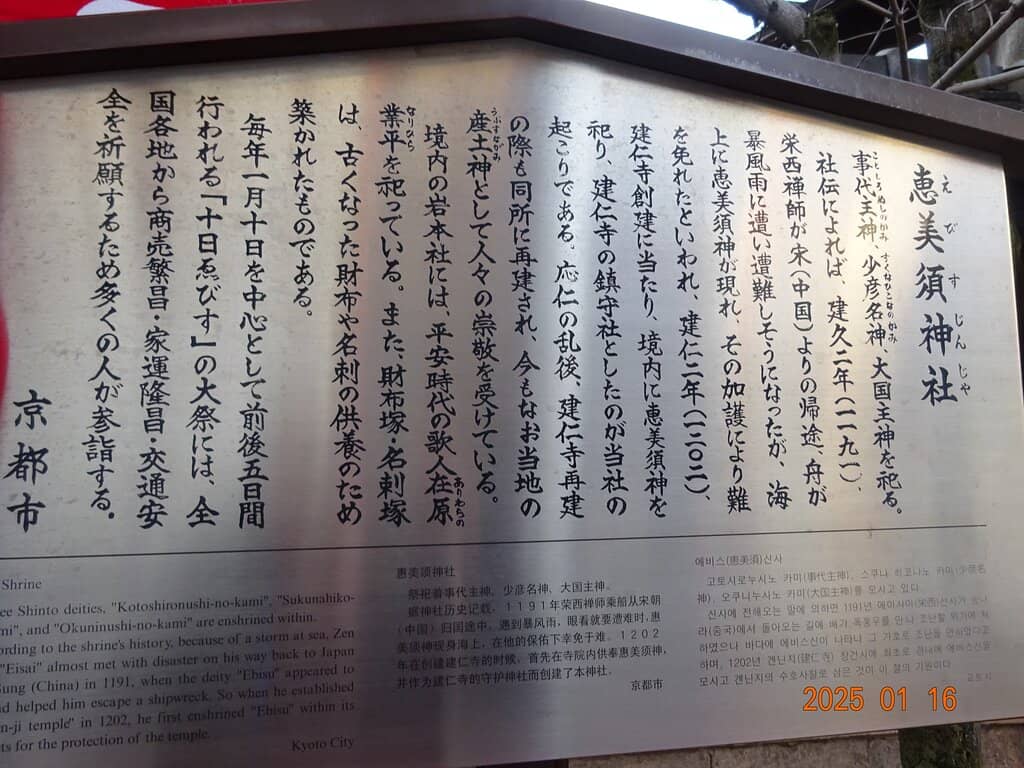 恵美須神社
えびすじんじゃ
事代主神、少彦名神、大国王神を祀る。
ことしろぬしのかみ すくなひこなのかみ
社伝によれば、建久二年(一一九一)、
栄西禅師が宋(中国)よりの帰途、舟が
暴風雨に遭い遭難しそうになったが、海
上に恵美須神が現れ、その加護により難
を免れたといわれ、建仁二年(一二〇二)、
建仁寺創建に当たり、境内に恵美須神を
祀り、建仁寺の鎮守社としたのが当社の
起こりである。応仁の乱後、建仁寺再建
の際も同所に再建され、今もなお当地の
産土神として人々の崇敬を受けている。
うぶすながみ
境内の岩本社には、平安時代の歌人在原
ありわらの
業平を祀っている。また、財布塚・名刺塚
なりひら
は、古くなった財布や名刺の供養のため
築かれたものである。
毎年一月十日を中心として前後五日間
行われる「十日ゑびす」の大祭には、全
国各地から商売繁昌・家運隆昌・交通安
全を祈願するため多くの人が参詣する。
京都市
Shrine
ee Shinto deities, "Kotoshironushi-no-kami", "Sukunahiko-
mi", and "Okuninushi-no-kami" are enshrined within.
ording to the shrine's history, because of a storm at sea, Zen
"Eisai" almost met with disaster on his way back to Japan
Sung (China) in 1191, when the deity "Ebisu" appeared to
d helped him escape a shipwreck. So when he established
n-ji temple" in 1202, he first enshrined "Ebisu" within its
ts for the protection of the temple.
Kyoto City
惠美须神社
祭祀着事代主神、少彦名神、大国主神。
据神社历史记载,1191年荣西禅师乘船从宋朝
(中国)归国途中,遇到暴风雨,眼看就要遭难时,惠
美须神现身海上,在他的保佑下幸免于难。1202
年在创建建仁寺的时候,首先在寺院内供奉惠美须神,
并作为建仁寺的守护神社而创建了本神社。
京都市
에비스(惠美須)신사
고토시로누시노 카미(事代主神), 스쿠나 히코나노 카미(少彦名
神), 오쿠니누시노 카미(大国主神)를 모시고 있다.
신사에 전해오는 말에 의하면 1191년 에이사이(栄西)선사가 송나
라(중국)에서 돌아오는 길에 배가 폭풍우를 만나 조난할 위기에 처
하였으나 바다에 에비스신이 나타나 그 가호로 조난을 면하였다고
하며, 1202년 겐닌지(建仁寺) 창건시에 최초로 경내에 에비스신을
모시고 겐닌지의 수호사찰로 삼은 것이 이 절의 기원이다.
교토시
2025 01 16